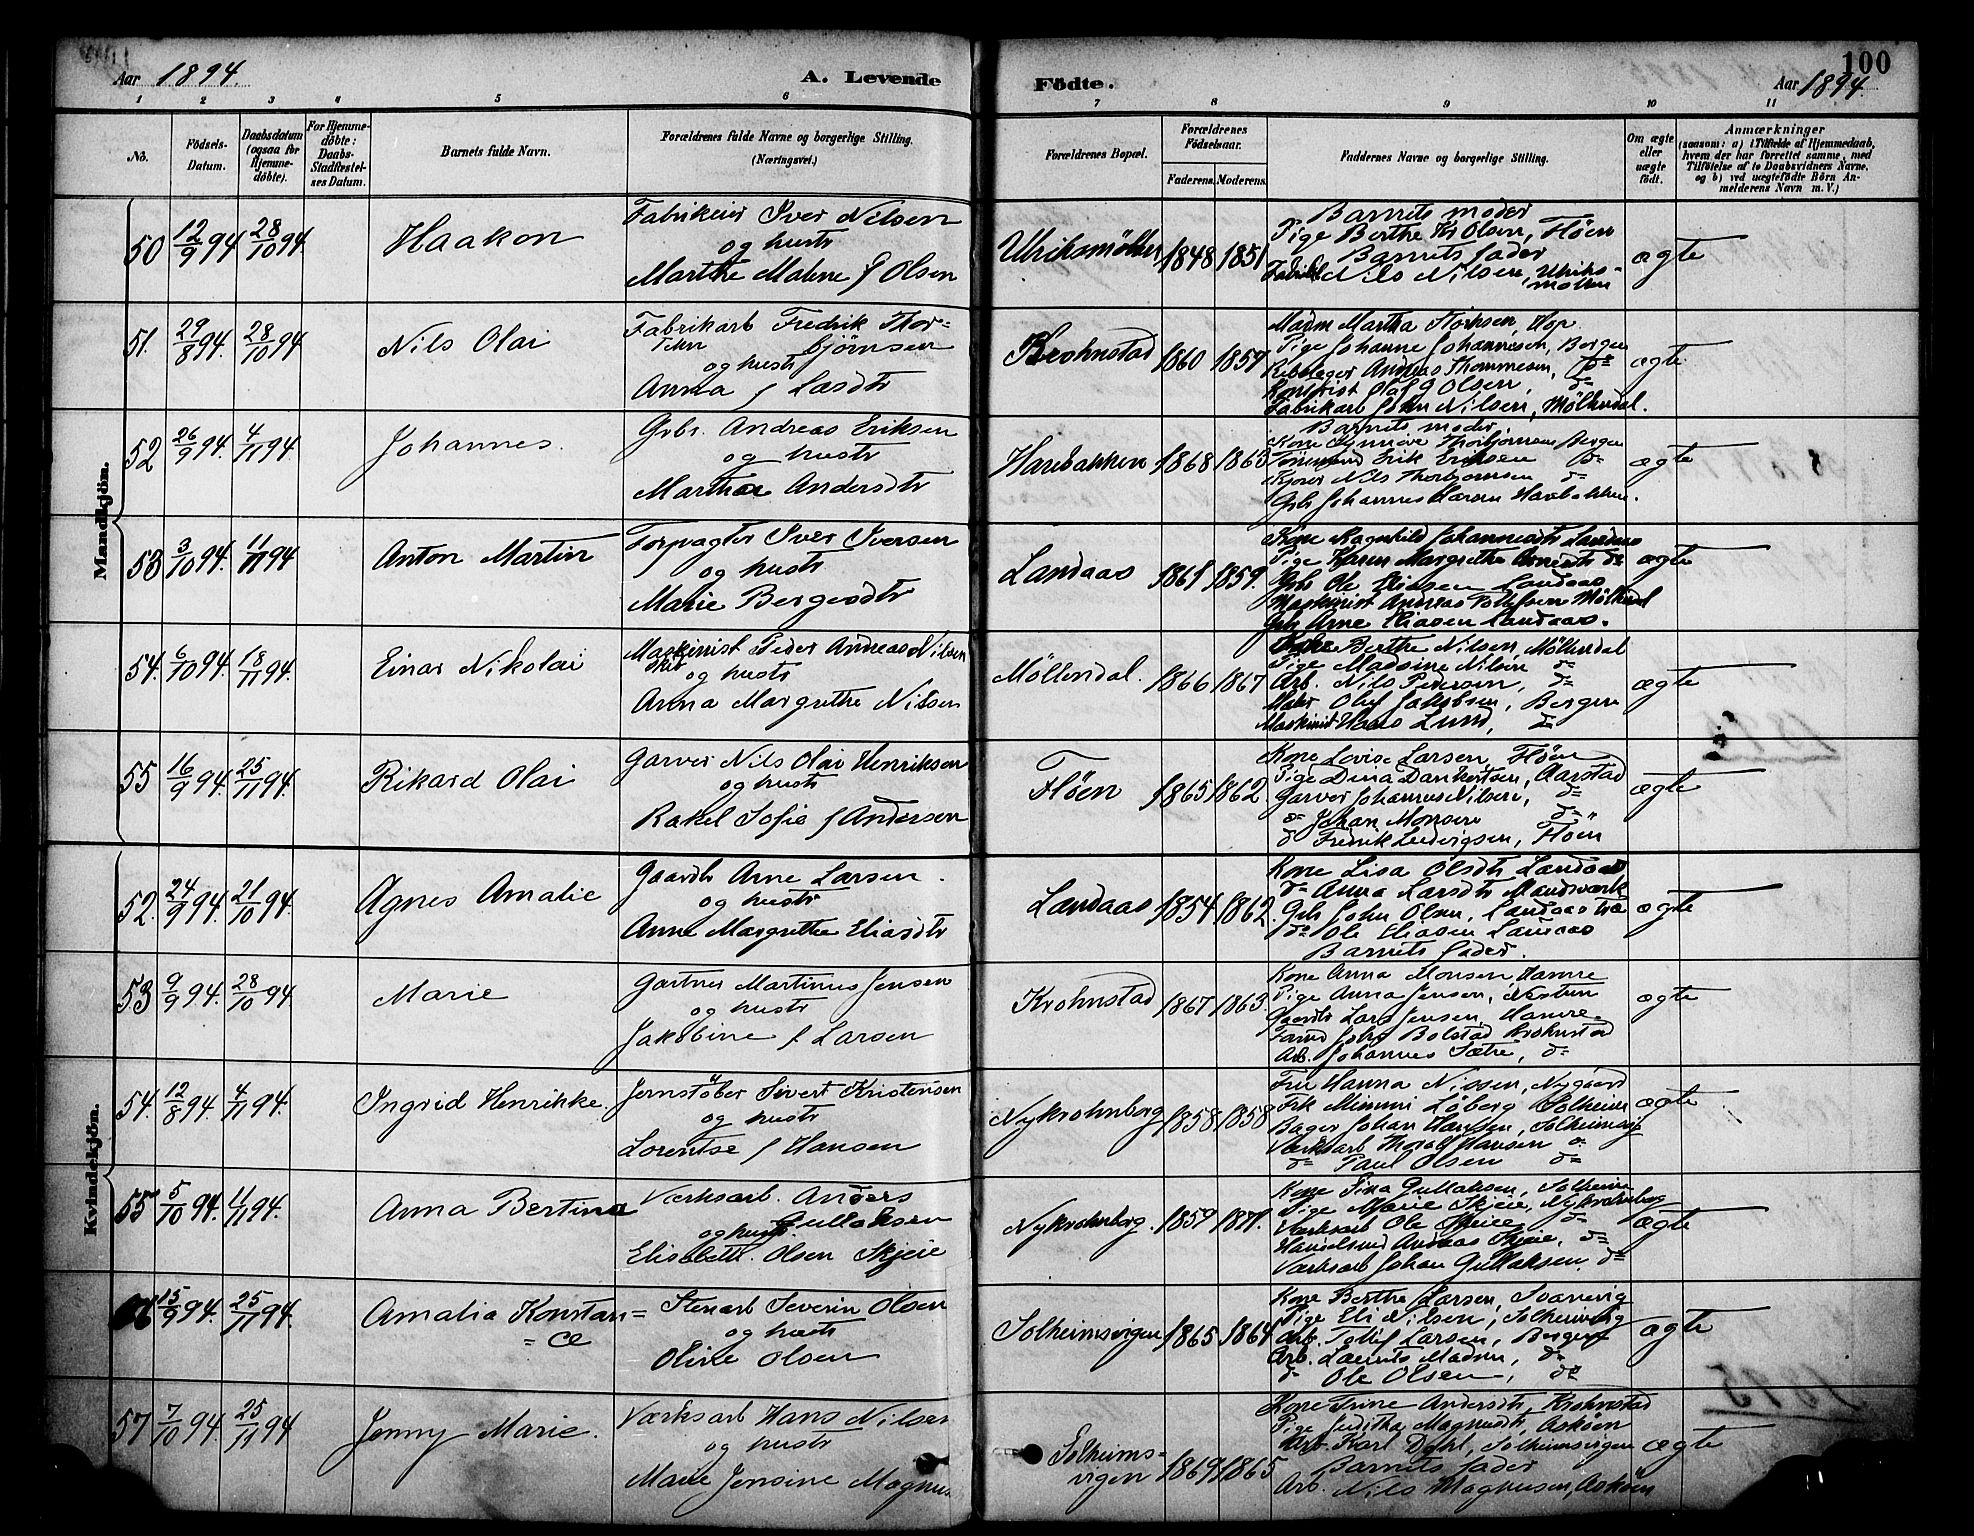 100
Aar 1894.
A. Levende
Födte.
Aar 1894
1 2 3 4 5 6 7 8 9 10 11
No.
Födsels-
Datum.
Daabsdatum
(ogsaa for
Hjemme-
döbte).
For Hjemme-
döbte:
Daabs-
Stadfæstel-
ses Datum.
Barnets fulde Navn.
Forældrenes fulde Navne og borgerlige Stilling.
(Næringsvei.)
Forældrenes Bopæl.
Forældrenes
Födselsaar.
Faderens. Moderens.
Faddernes Navne og borgerlige Stilling.
Om ægte
eller
uægte
födt.
Anmærkninger
(saasom: a) i Tilfælde af Hjemmedaab,
hvem der har forrettet samme, med
Tilföielse af to Daabsvidners Navne,
og b) ved uægtefödte Börn An-
melderens Navn m. V.)
Mandkjön.
50 12/9 94 28/10 94. Haakon
Fabrikeier Iver Nilsen
og hustr
Marthe Malene f Olsen
Ulriksmøllen 1848 1851
Barnets moder
Pige Berthe Olsen, Fløen
Barnets fader
Nils Nilsen, Ulriks-
møllen
ægte
51. 29/8 94. 28/10 94 Nils Olai
Fabrikarb Fredrik Thor=
bjørnsen
og hustr
Anna f Lasdtr
Krohnstad 1860 1857
Madm Martha Storksen, Hop
Pige Johanne Johannesen, Bergen
Andreas Thommesen, do
Olaf Olsen, do
Fabrikarb John Nilsen, Møllendal.
ægte
52 26/9 94. 4/11 94 Johannes.
Gbr. Andreas Eriksen
og hustr
Martha Andersdtr
Harebakken 1868 1863
Barnets moder
Kone Synnøve Thorbjørnsen Bergen
Erik Eriksen do
Nils Thorbjørnsen do
Gbr Johannes Harebakken.
ægte
53 3/10 94. 11/11 94 Anton Martin
Forpagter Iver Iversen
og hustr
Marie Bergesdtr
Landaas 1861 1859.
Kone Ragnhild Johannesdtr Landaas
Pige Karen Margrethe Arnesdtr do
Gbr Ole Eliasen Landaas
Maskinist Andreas Tollefsen Møllendal
Gbr Arne Eliasen Landaas.
ægte
54. 6/10 94. 18/11 94. Einar Nikolai
Maskinist Peder Andreas Nilsen
og hustr
Anna Margrethe Nilsen
Möllendal. 1866 1867
Kone Berthe Nilsen, Möllendal
Pige Madsine Nilsen do
Arb. Nils Pedersen, do
Maler Oluf Jakobsen, Bergen
Maskinist Hans Lund, do
ægte
55 16/9 94. 25/11 94. Rikard Olai
Garver Nils Olai Henriksen
og hustr
Rakel Sofie f Andersen
Fløen 1865 1862.
Kone Lovise Larsen, Fløen
Pige Dina Dankertsen, Aarstad
Garver Johannes Nilsen, do
do Johan Monsen do
do Fredrik Ludvigsen, Fløen
ægte
Kvindekjön.
52. 24/9 94. 21/10 94. Agnes Amalie
Gaardbr Arne Larsen.
og hustr
Anne Margrethe Eliasdtr
Landaas 1854 1862.
Kone Lisa Olsdtr Landaas
do Anna Larsdtr Mandsværk
Gbr John Olsen, Landaas
do Ole Eliasen Landaas
Barnets fader.
ægte
53 9/9 94. 28/10 94 Marie
Gartner Martinus Jensen
og hustr
Jakobine f Larsen
Krohnstad 1867 1863.
Kone Anna Monsen, Hamre
Pige Anna Jensen, Nesttun
Gaardbr Lars Jensen, Hamre.
John Bolstad Krohnstad
Arb. Johannes Sætre, do
ægte
54. 12/8 94. 4/11 94. Ingrid Henrikke.
Jernstøber Sivert Kristensen
og hustr
Lorentse f Hansen
Nykrohnborg 1858 1858
Fru Hanna Nissen, Nygaard
Frk Mimmi Löberg Solheim
Bager Johan Hansen, Solheimsvig
Værksarb Thoralf Hansen do
do Paul Olsen do
ægte
55 5/10 94. 11/11 94. Anna Bertina
Værksarb. Anders
Gullaksen
og hustr
Elisabeth Olsen Skjeie
Nykrohnborg. 1859 1871.
Kone Sina Gullaksen, Solheim
Pige Marie Skjeie, Nykrohnborg
Værksarb Ole Skjeie do
Andreas Skjeie, do
Værksarb Johan Gullaksen. do
ægte
56 15/9 94. 25/11 94. Amalia Konstan=
=ce
Stenarb Severin Olsen
og hustr
Oline Olsen
Solheimsvigen 1865 1864
Kone Berthe Larsen, Svanevig
Pige Eli Nilsen, Solheimsvig
Arb. Tollef Larsen, Bergen
Arb. Laurits Madsen, do
do Ole Olsen, do
ægte
57 7/10 94. 25/11 94 Jenny Marie.
Værksarb Hans Nilsen
og hustr
Marie Jensine Magnus
Solheims-
vigen 1869 1865
Kone Trine Andersdtr, Krohnstad
Pige Juditha Magnusdtr, Askøen
Arb. Karl Dahl, Solheimsvigen
Barnets fader
Arb. Nils Magnusen, Askøen
ægte